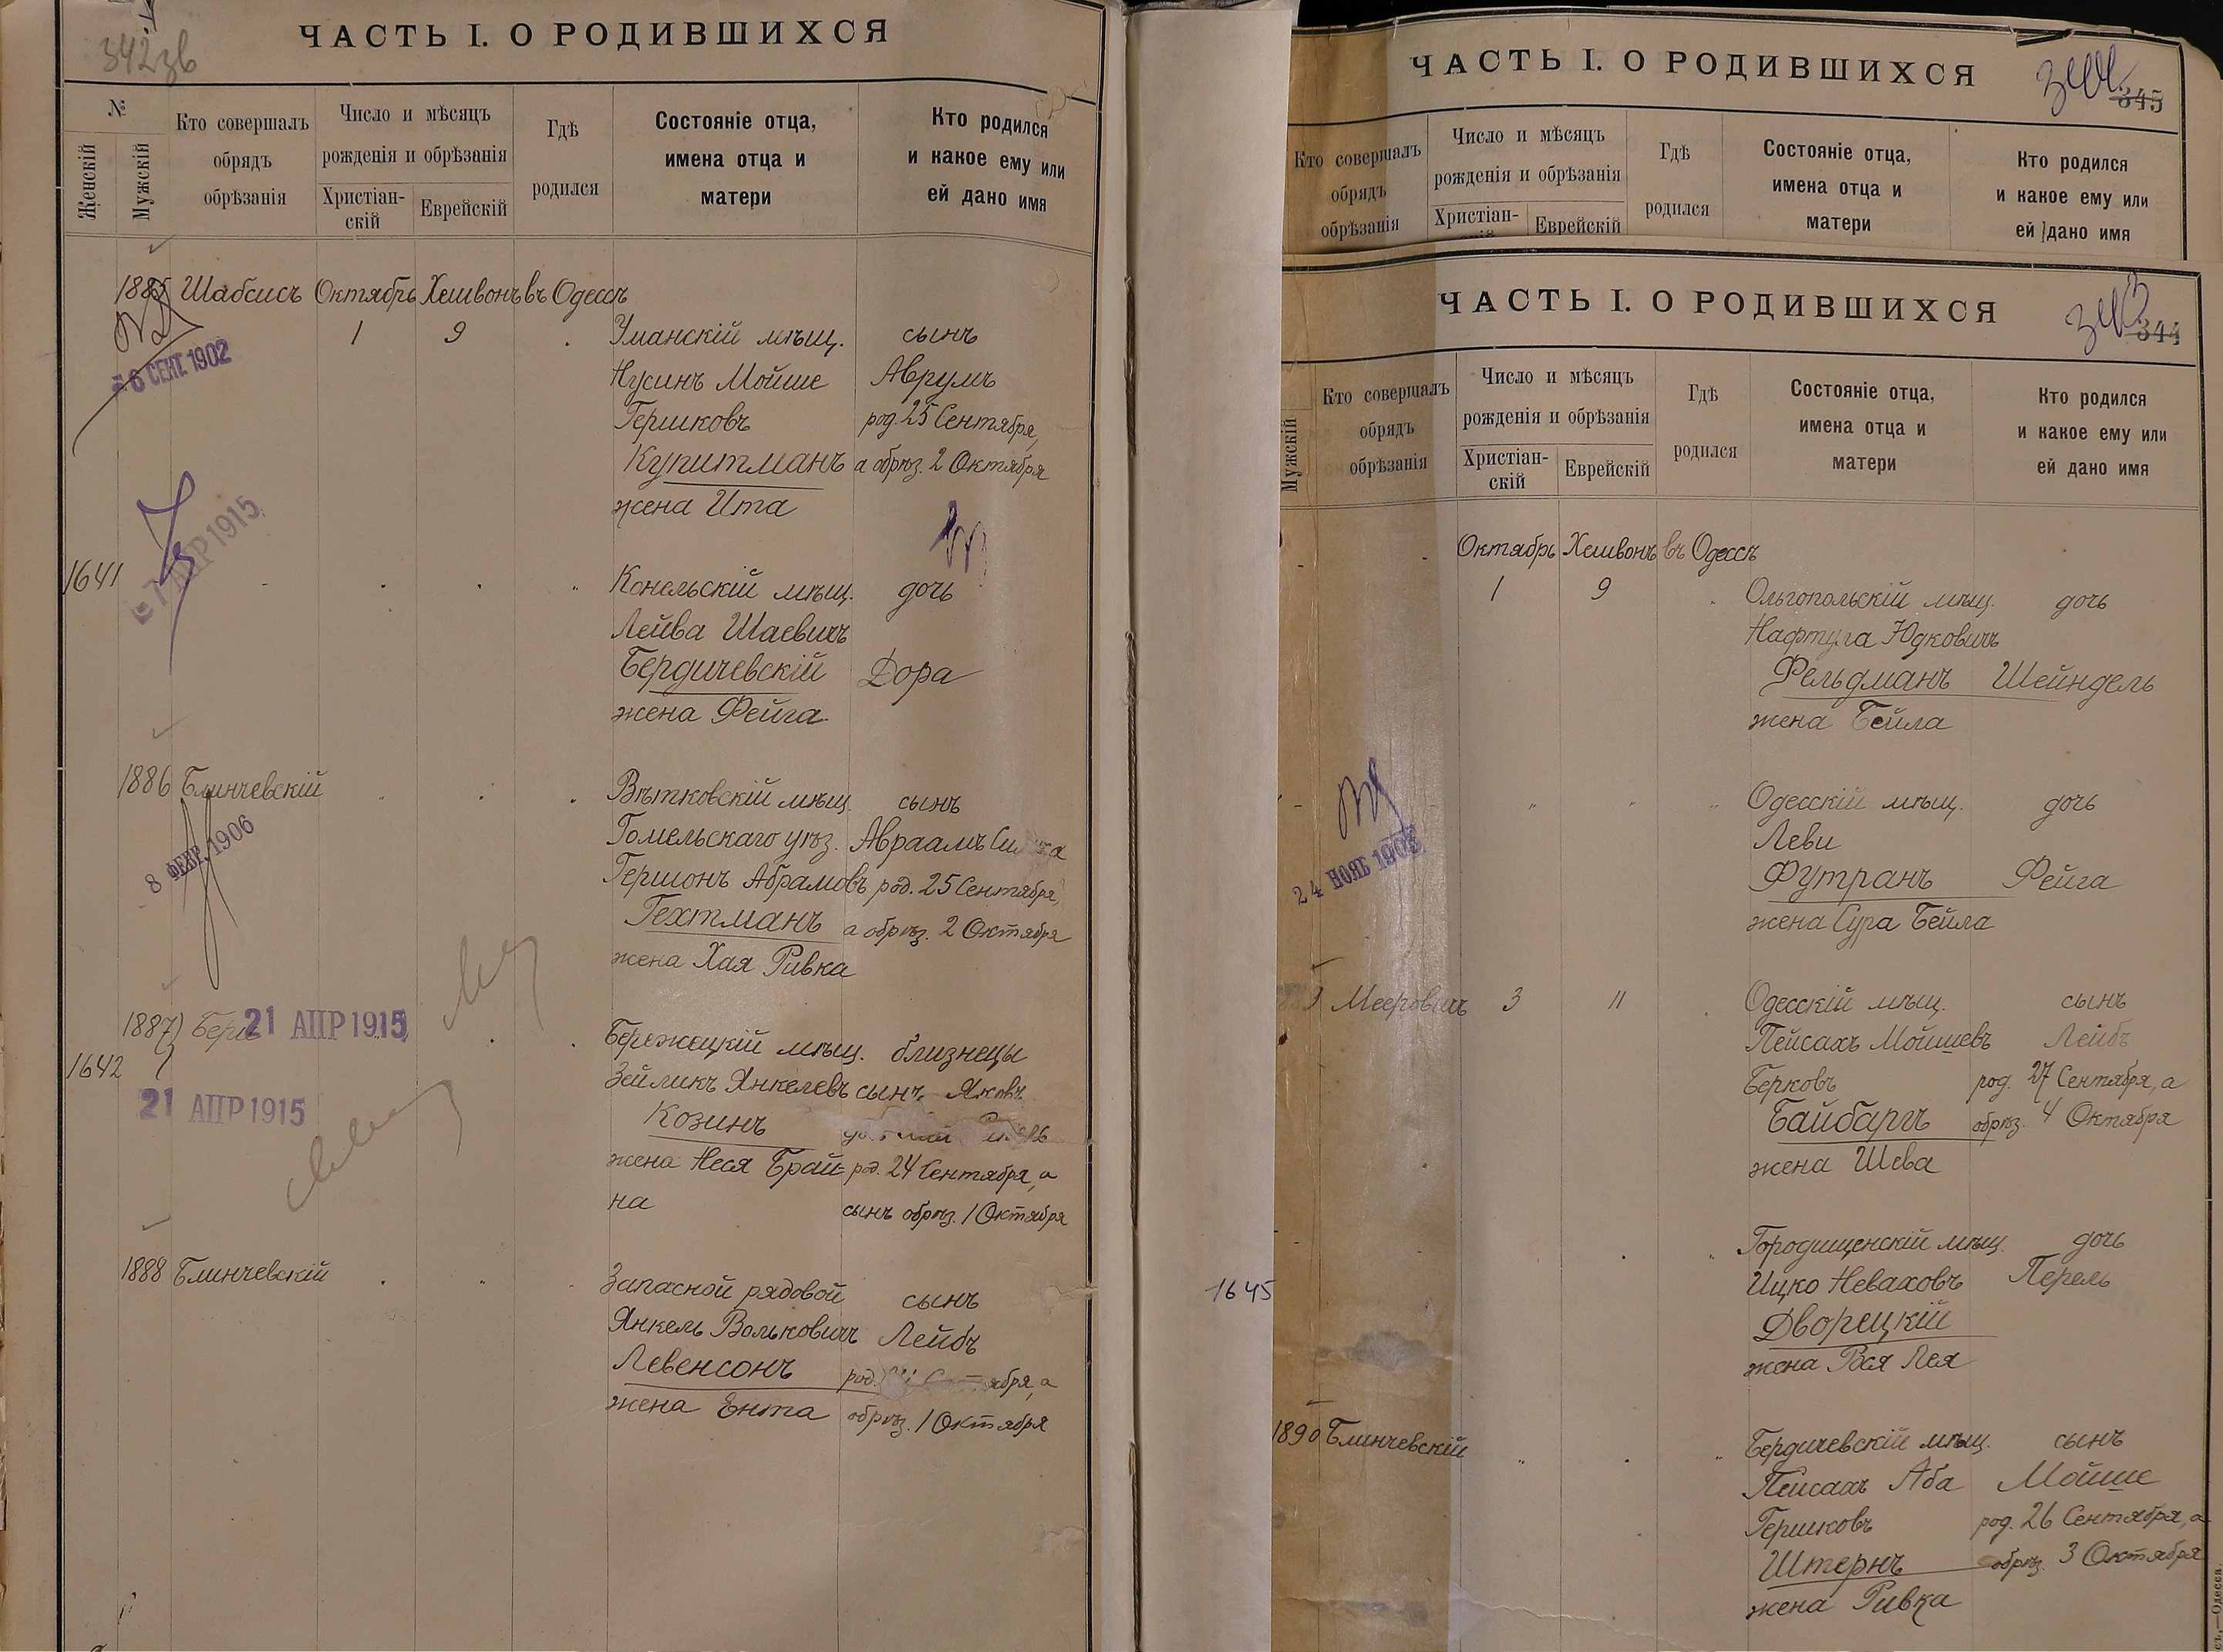 342 зв
ЧАСТЬ I. О РОДИВШИХСЯ
№
Женскій
Мужскій
Кто совершалъ
обрядъ
обрѣзанія
Число и мѣсяцъ
рожденія и обрѣзанія
Христіан-
скій
Еврейскій
Гдѣ
родился
Состояніе отца,
имена отца и
матери
Кто родился
и какое ему или
ей дано имя
1885 Шабсисъ Октябрь Хешвонъ въ Одессѣ
1 9 Уманскій мѣщ. сынъ
6 СЕНТ. 1902
Нусинъ Мойше Аврумъ
Гершковъ род. 25 Сентября,
Купитманъ а обрѣз. 2 Октября
жена Ита
7 АПР 1915
1641 Конельскій мѣщ. дочь
Лейба Шаевичъ
Бердичевскій Дора
жена Фейга
1886 Блинчевскій Вѣтковскій мѣщ. сынъ
8 ФЕВР. 1906
Гомельскаго уѣз. Авраамъ
Гершонъ Абрамовъ род. 25 Сентября,
Гехтманъ а обрѣз. 2 Октября
жена Хая Ривка
1887 21 АПР 1915 Бережецкій мѣщ. близнецы
1642 Зейликъ Янкелевъ сынъ Яковъ
21 АПР 1915
Козинъ
жена Неся Брай- род. 24 Сентября, а
на сынъ обрѣз. 1 Октября
1888 Блинчевскій Запасной рядовой сынъ
Янкель Вольковичъ Лейбъ
Левенсонъ род.
жена Ента обрѣз. 1 Октября
ЧАСТЬ I. О РОДИВШИХСЯ
345
Кто совершалъ
обрядъ
обрѣзанія
Число и мѣсяцъ
рожденія и обрѣзанія
Христіан-
Еврейскій
Гдѣ
родился
Состояніе отца,
имена отца и
матери
Кто родился
и какое ему или
ей дано имя
ЧАСТЬ I. О РОДИВШИХСЯ
343
344
Мужскій
Кто совершалъ
обрядъ
обрѣзанія
Число и мѣсяцъ
рожденія и обрѣзанія
Христіан-
скій
Еврейскій
Гдѣ
родился
Состояніе отца,
имена отца и
матери
Кто родился
и какое ему или
ей дано имя
Октябрь Хешвонъ въ Одессѣ
1 9 Ольгопольскій мѣщ. дочь
Нафтула Юдковичъ
Фельдманъ Шейндель
жена Бейла
Одесскій мѣщ. дочь
Леви
24 НОЯБ
Футранъ Фейга
жена Сура Бейла
Мееровичъ 3 11 Одесскій мѣщ. сынъ
Пейсахъ Мойшевъ Лейбъ
Берковъ род. 27 Сентября, а
Байбаргъ обрѣз. 4 Октября
жена Шева
1645 Городищенскій мѣщ. дочь
Ицко Неваховъ Перель
Дворецкій
жена Лея
1890 Блинчевскій Бердичевскій мѣщ. сынъ
Пейсахъ Аба Мойше
Гершковъ род. 26 Сентября, а
Штернъ обрѣз. 3 Октября
жена Ривка